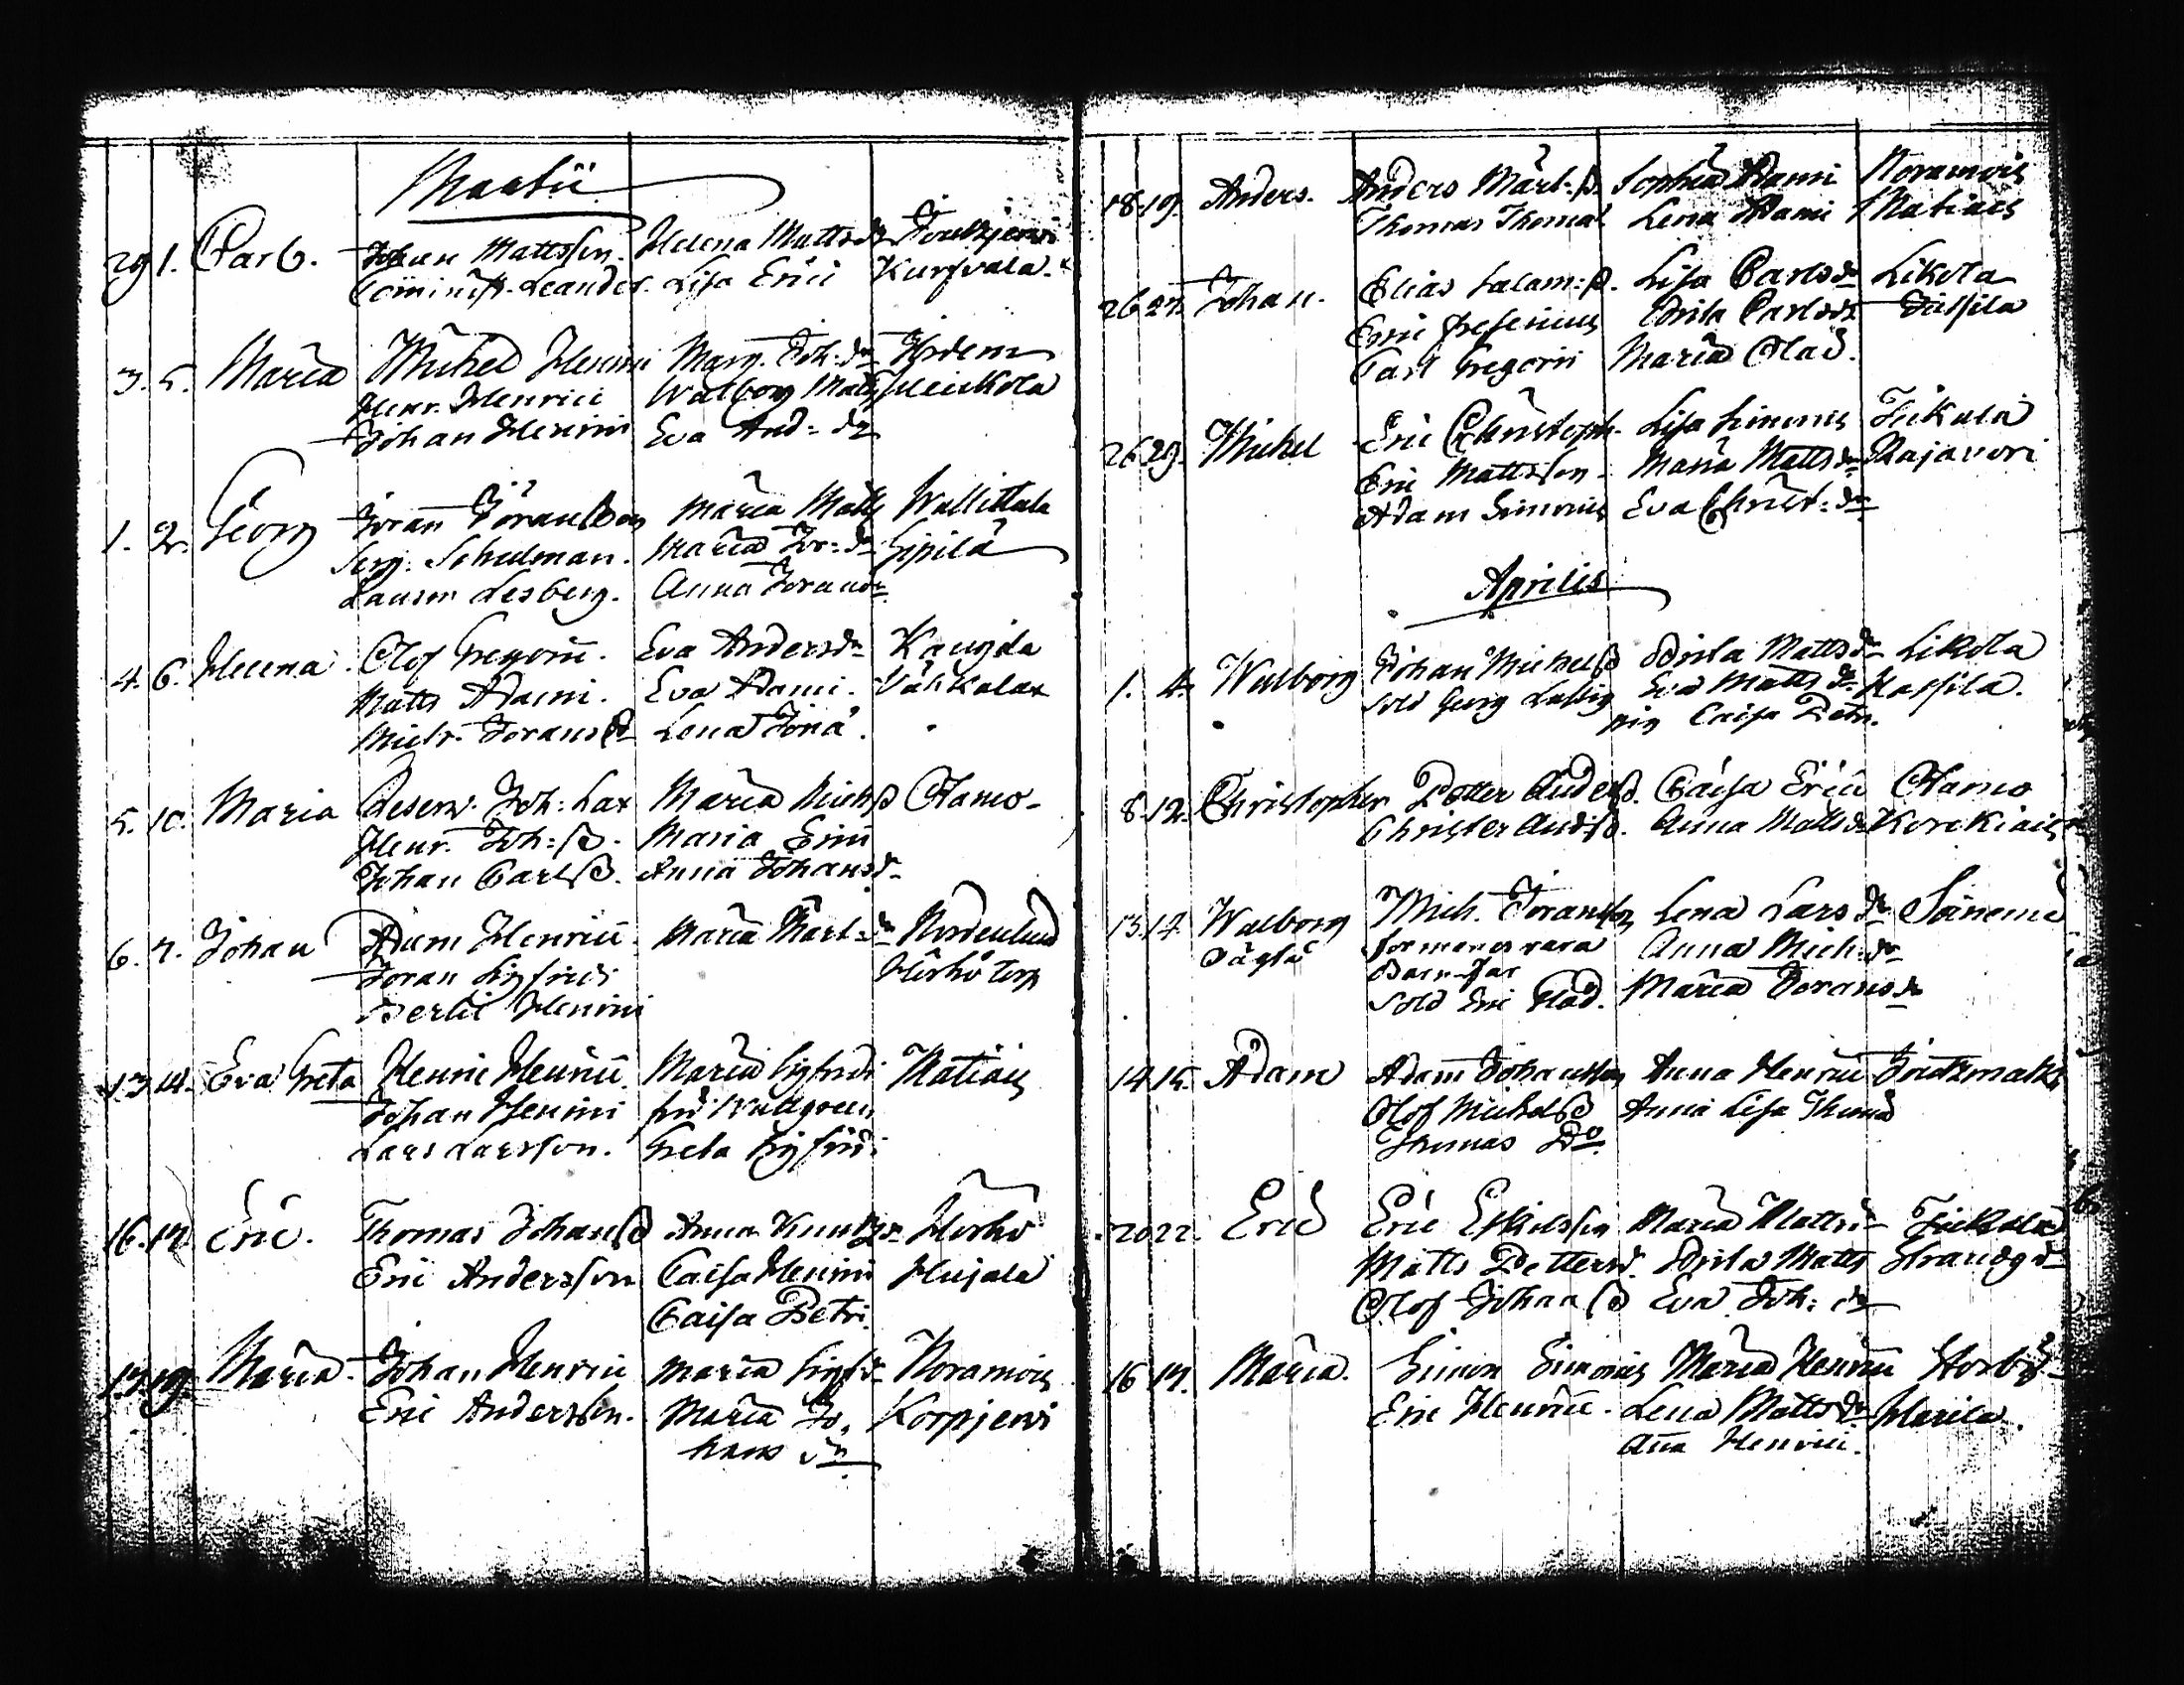 Martii
29 1. Carl. Johan Mattsson. Helena Mattsdr Joukjerwi
Comminist. Leander. Lisa Erici Kurssala.
3. 5. Maria Michel Henrici Marg. Joh: dr Hordem
Henr. Henrici Walborg Matts Heickola
Johan Henrici Eva And= dr
1. 2. Georg Jöran Jöransson Maria Matts Wallittula
Serg: Schulman. Maria Jör= dr Sipilä
Lausm Lesberg. Anna Joransdr
4. 6. Helena. Olof Gregorii. Eva Andersdr Kaugila
Matts Adami. Eva Adami. Wähkalax
Mich. Joransß Lena Jona
5. 10. Maria Reserv. Joh: Lax Maria Michß Ohamo
Henr. Joh: ß. Maria Erici
Johan Carlß. Anna Johansdr
6. 7. Johan Adam Henrici. Maria Märt= dr Nordenlund
Joran Sigfridi Hörhö torp
Bertil Henrici
13 14. Eva Greta Henric Henrici. Maria Sigfridi Matiais
Johan Henrici fru Wallgreen
Lars Larsson. Greta Sigfridi
16. 17. Eric. Thomas Johanß Anna Knutsdr Hörhö
Eric Andersson Caisa Henrici Hujala
Caisa Petri.
17. 19. Maria. Johan Henrici Maria Sigfdr Noramois
Eric Andersson. Maria Jo- Korpjerwi
hans dr
18. 19. Anders. Anders Märt: ß. Sophia Adami Noramois
Thomas Thomaß Lena Adami Matiais
26 27. Johan. Elias Salam: ß. Lisa Carlsdr Likola
Eric Gresenius Brita Carlsdr Jussila
Carl Gregorii Maria Olai.
26 29. Michel Eric Christoph. Lisa Simonis Jukula
Eric Mattsson. Maria Mattsdr Rajavori
Adam Simonis Eva Christ: dr
Aprilis
1. 4. Walborg Johan Michelsß Brita Mattsdr Likola
Sold Georg Eva Matts dr Hassila.
pig Caisa Petri.
8. 12. Christopher Petter Andersß. Caisa Erici Ohamo
Christer Andß. Anna Mattsdr Korckiais
13. 14. Walborg Mich. Joransson Lena Lars dr Säneme
Oägta förmenes vara Anna Mich: dr
Barn far
Sold Eric Glad. Maria Jorans dr
14. 15. Adam Adam Johansson Anna Henrici
Olof Michelsß Anna Lisa Thomä
Thomas Do.
20 22. Eric Eric Eskilsson Maria Mattsdr Jukola
Matts Petterß. Brita Matts Strandgd
Olof Johanß Eva Joh: dr
16 17. Maria. Simon Simonis Maria Henrici Horbÿ
Eric Henrici. Lena Mattsdr Harila.
Anna Henrici.